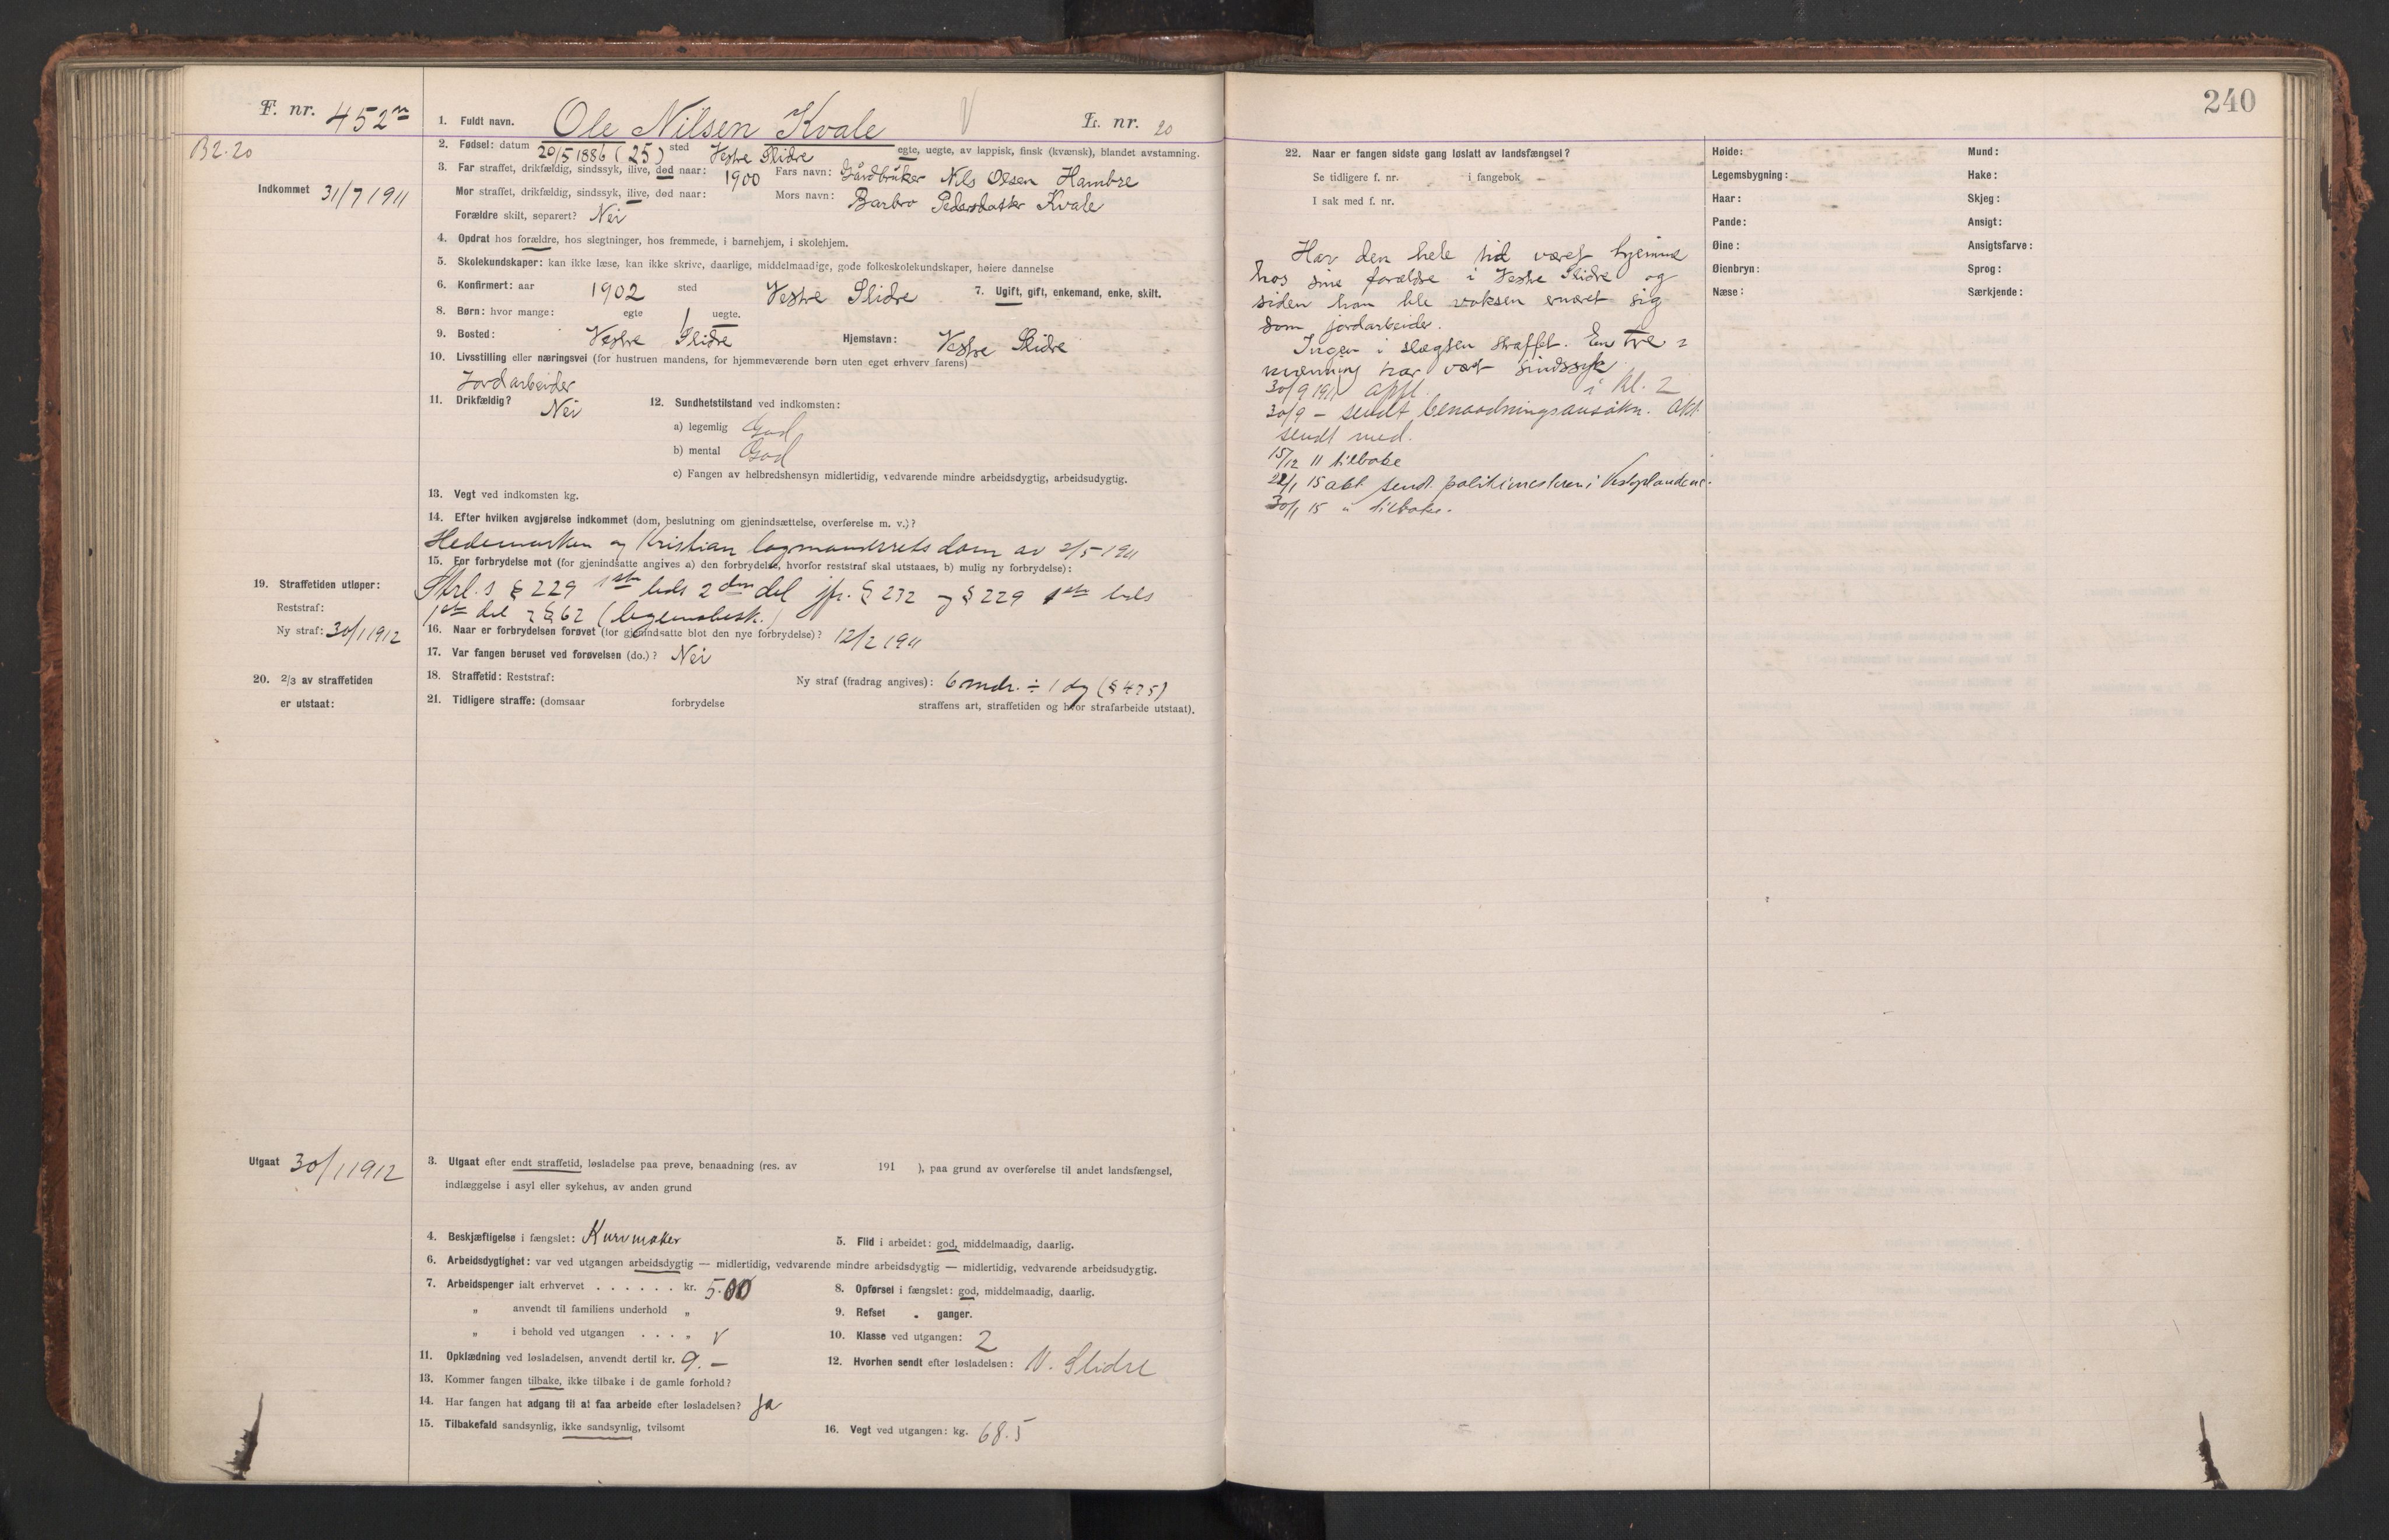 F. nr. 452
B2.20
Indkommet 31/7 1911
1. Fuldt navn. Ole Nilsen Kvale V L. nr. 20
2. Fødsel: datum 20/5 1886 (25) sted Vestre Slidre egte, uegte, av lappisk, finsk (kvænsk), blandet avstamning.
3. Far straffet, drikfældig, sindssyk, ilive, død naar: 1900 Fars navn: Gårdbruker Nils Olsen Hambre
Mor straffet, drikfældig, sindssyk, ilive, død naar: Mors navn: Barbro Pedersdatter Kvale
Forældre skilt, separert? Nei
4. Opdrat hos forældre, hos slegtninger, hos fremmede, i barnehjem, i skolehjem.
5. Skolekundskaper: kan ikke læse, kan ikke skrive, daarlige, middelmaadige, gode folkeskolekundskaper, høiere dannelse
6. Konfirmert: aar 1902 sted Vestre Slidre 7. Ugift, gift, enkemand, enke, skilt.
8. Børn: hvor mange: egte 1 uegte.
9. Bosted: Vestre Slidre Hjemstavn: Vestre Slidre
10. Livsstilling eller næringsvei (for hustruen mandens, for hjemmeværende børn uten eget erhverv farens)
Jordarbeider
11. Drikfældig? Nei 12. Sundhetstilstand ved indkomsten:
a) legemlig God
b) mental God
c) Fangen av helbredshensyn midlertidig, vedvarende mindre arbeidsdygtig, arbeidsudygtig.
13. Vegt ved indkomsten kg.
14. Efter hvilken avgjørelse indkommet (dom, beslutning om gjenindsættelse, overførelse m. v.)?
Hedemarken og Kristian lagmandsrets dom av 2/5 1911
15. For forbrydelse mot (for gjenindsatte angives a) den forbrydelse, hvorfor reststraf skal utstaaes, b) mulig ny forbrydelse):
Strl.s § 229 1ste leds 2den del jfr. § 232 og § 229 1ste leds
1ste del § 62 (legemsbesk.)
16. Naar er forbrydelsen forøvet (for gjenindsatte blot den nye forbrydelse)? 12/2 1911
17. Var fangen beruset ved forøvelsen (do.)? Nei
18. Straffetid: Reststraf: Ny straf (fradrag angives): 6 mdr. ÷ 1 dg (§ 475)
21. Tidligere straffe: (domsaar forbrydelse straffens art, straffetiden og hvor strafarbeide utstaat).
19. Straffetiden utløper:
Reststraf:
Ny straf: 30/1 1912
20. 2/3 av straffetiden
er utstaat:
Utgaat 30/1 1912
3. Utgaat efter endt straffetid, løsladelse paa prøve, benaadning (res. av 191 ), paa grund av overførelse til andet landsfængsel,
indlæggelse i asyl eller sykehus, av anden grund
4. Beskjæftigelse i fængslet: Kurvmaker 5. Flid i arbeidet: god, middelmaadig, daarlig.
6. Arbeidsdygtighet: var ved utgangen arbeidsdygtig — midlertidig, vedvarende mindre arbeidsdygtig — midlertidig, vedvarende arbeidsudygtig.
7. Arbeidspenger ialt erhvervet . . . . . . kr. 5.00 8. Opførsel i fængslet: god, middelmaadig, daarlig.
„ anvendt til familiens underhold „ 9. Refset . ganger.
„ i behold ved utgangen . . . „ V 10. Klasse ved utgangen: 2
11. Opklædning ved løsladelsen, anvendt dertil kr. 9.— 12. Hvorhen sendt efter løsladelsen: V. Slidre
13. Kommer fangen tilbake, ikke tilbake i de gamle forhold?
14. Har fangen hat adgang til at faa arbeide efter løsladelsen? Ja
15. Tilbakefald sandsynlig, ikke sandsynlig, tvilsomt 16. Vegt ved utgangen: kg. 68.5
240
22. Naar er fangen sidste gang løslatt av landsfængsel?
Se tidligere f. nr. i fangebok
I sak med f. nr.
Har den hele tid været hjemme
hos sine forældre i Vestre Slidre og
siden han ble voksen ernæret sig
som jordarbeider.
Ingen i slægten straffet. En tre=
menning har vært sindssyk
30/9 1911 opfl. i kl. 2
30/9 – sendt benaadningsansøkn. Akt
sendt med.
15/12 11 tilbake
22/1 15 akt. sendt politimesteren i Vestoplandene.
30/1 15 " tilbake.
Høide:
Legemsbygning:
Haar:
Pande:
Øine:
Øienbryn:
Næse:
Mund:
Hake:
Skjeg:
Ansigt:
Ansigtsfarve:
Sprog:
Særkjende: